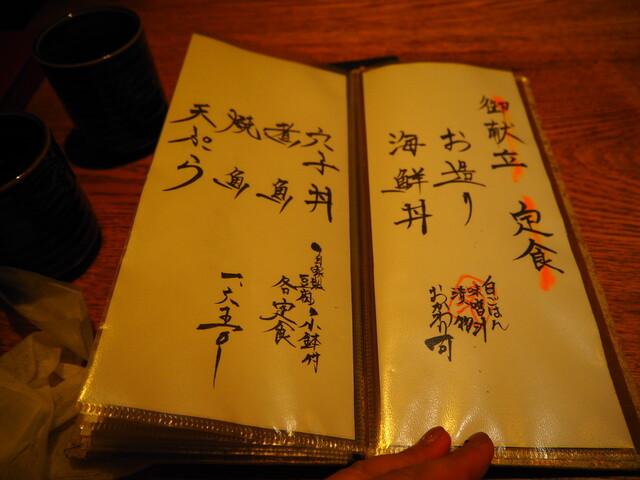 御献立 定食
お造り
海鮮丼
白ごはん
味噌汁
漬物
おかわり可
穴子丼
煮魚
焼魚
天ぷら
自家製
豆腐、小鉢付
各定食
一、六五〇